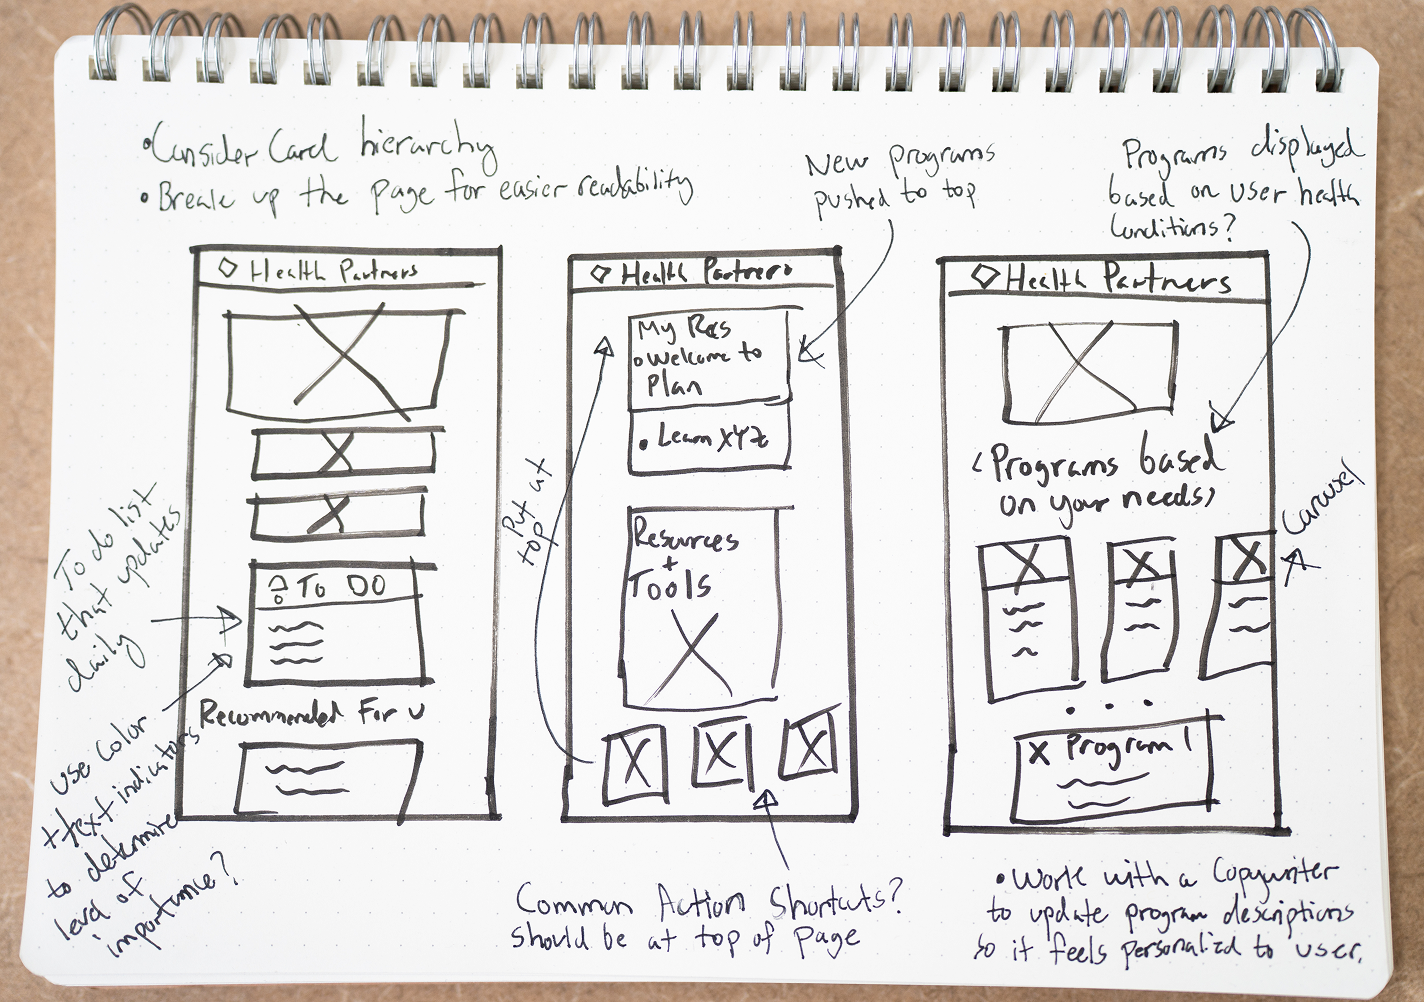 •Consider Card hierarchy
• Break up the page for easier readability
New programs
pushed to top
Programs displayed
based on user health
Conditions?
Health Partners
To DO
Recommended For U
To do list
that updates
daily
use color
+ text indicators
to determine
level of
importance?
Health Partners
My Recs
o Welcome to
Plan
• Learn XYZ
Resources
+
Tools
Put at
top
Common Action Shortcuts?
should be at top of page
Health Partners
<Programs based
on your needs>
Carousel
• • •
X Program 1
• Work with a Copywriter
to update program descriptions
so it feels personalized to user.